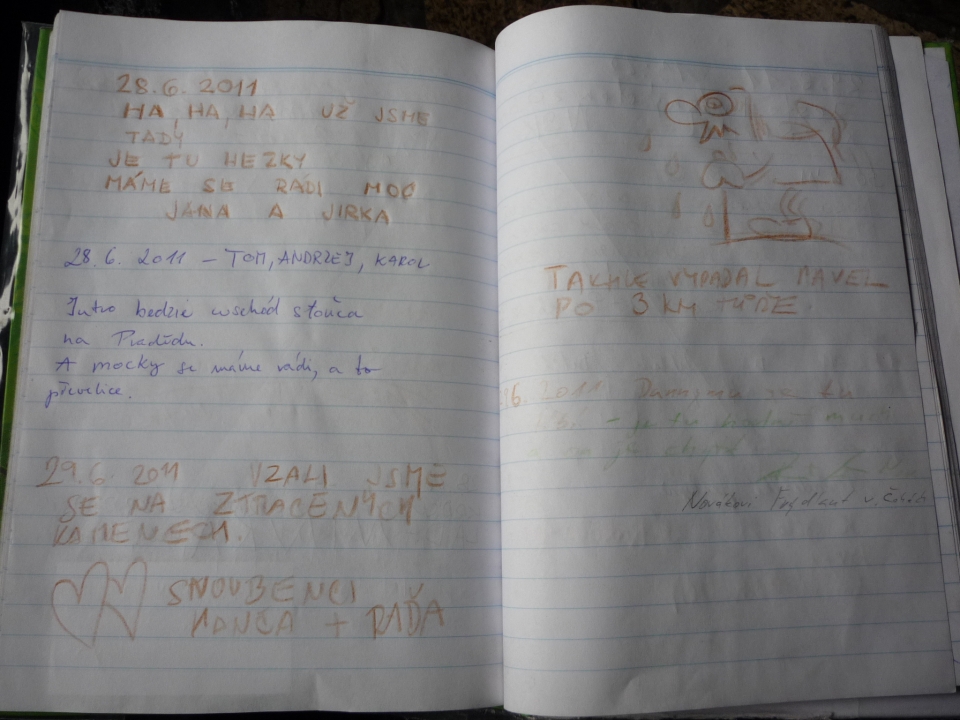 28.6. 2011
HA, HA, HA UŽ JSME
TADY
JE TU HEZKY
MÁME SE RÁDI MOC
JANA A JIRKA
28.6. 2011 – TOM, ANDRZEJ, KAROL
Jutro bedzie wschód słońca
na Pradědu.
A mocky se máme rádi, a to
převelice.
29.6 2011 VZALI JSME
SE NA ZTRACENÝCH
KAMENECH.
SNOUBENCI
HANČA + RAĎA
TAKHLE VYPADAL PAVEL
PO 3 KM TÚŘE.
6. 2011
- je tu hodně
Novákovi Frýdlant v Čech